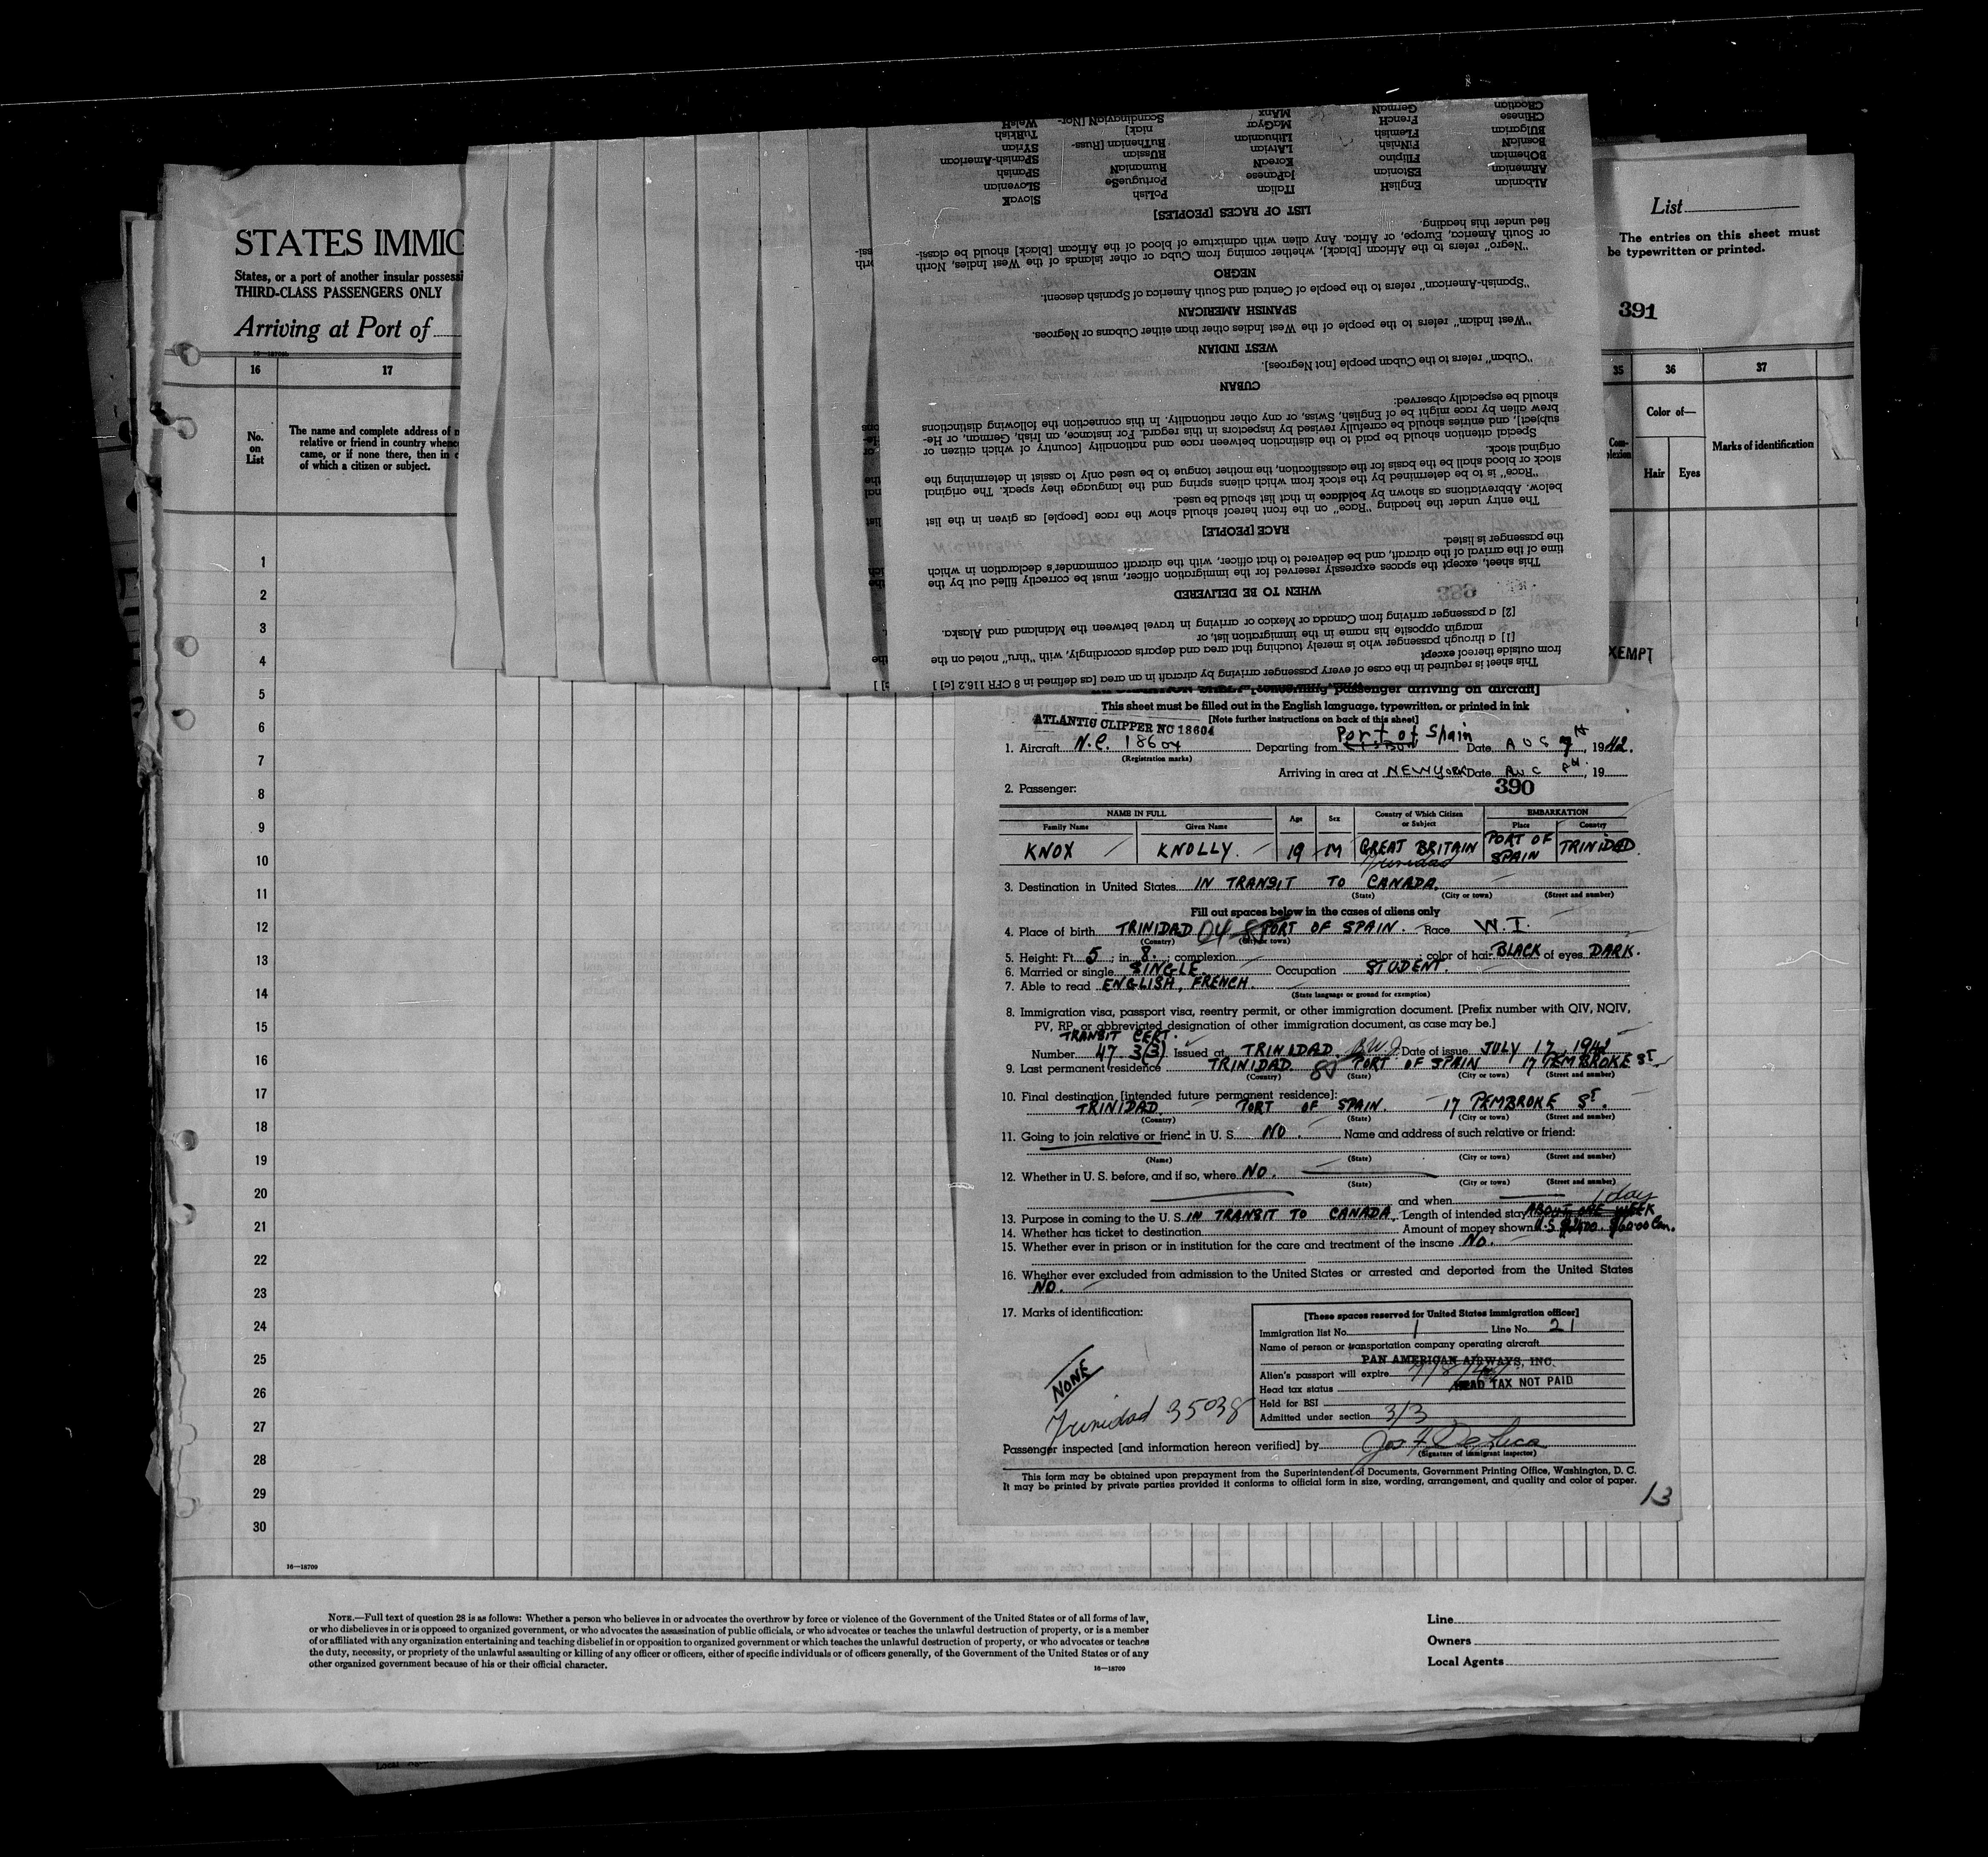 STATES IMMIG
States, or a port of another insular possessi
THIRD-CLASS PASSENGERS ONLY
Arriving at Port of
16-18709b
16
17
No.
on
List
The name and complete address of n
relative or friend in country whence
came, or if none there, then in c
of which a citizen or subject.
1
2
3
4
5
6
7
8
9
10
11
12
13
14
15
16
17
18
19
20
21
22
23
24
25
26
27
28
29
30
16—18709
List
The entries on this sheet must
be typewritten or printed.
391
35
36
37
Color of—
Com-
plexion
Hair
Eyes
Marks of identification
XEMPT
This sheet is required in the case of every passenger arriving by aircraft in an area [as defined in 8 CFR 116.2 [c] ]
from outside thereof except
[1] a through passenger who is merely touching that area and departs accordingly, with "thru" noted on the
margin opposite his name in the immigration list, or
[2] a passenger arriving from Canada or Mexico or arriving in travel between the Mainland and Alaska.
WHEN TO BE DELIVERED
This sheet, except the spaces expressly reserved for the immigration officer, must be correctly filled out by the
time of the arrival of the aircraft, and be delivered to that officer, with the aircraft commander's declaration in which
the passenger is listed.
RACE [PEOPLE]
The entry under the heading "Race" on the front hereof should show the race [people] as given in the list
below. Abbreviations as shown by boldface in that list should be used.
"Race" is to be determined by the stock from which aliens spring and the language they speak. The original
stock or blood shall be the basis for the classification, the mother tongue to be used only to assist in determining the
original stock.
Special attention should be paid to the distinction between race and nationality [country of which citizen or
subject], and entries should be carefully revised by inspectors in this regard. For instance, an Irish, German, or He-
brew alien by race might be of English, Swiss, or any other nationality. In this connection the following distinctions
should be especially observed:
CUBAN
"Cuban" refers to the Cuban people [not Negroes].
WEST INDIAN
"West Indian" refers to the people of the West Indies other than either Cubans or Negroes.
SPANISH AMERICAN
"Spanish-American" refers to the people of Central and South America of Spanish descent.
NEGRO
"Negro" refers to the African [black], whether coming from Cuba or other islands of the West Indies, North
or South America, Europe, or Africa. Any alien with admixture of blood of the African [black] should be classi-
fied under this heading.
LIST OF RACES [PEOPLES]
ALbanian EnglisH ITalian PoLish SlovaK
ARmenian EStonian JaPanese PortugueSe SLovenian
BOhemian FIlipino KoreaN RumaniaN SPanish
BosniaN FiNnish LAtvian RUssian SPanish-American
BUlgarian FLemish Lithuanian RuThenian [Russ- SYrian
CHinese FrencH MaGyar niak] TuRkish
CRoatian GermaN MAnx ScandinaviaN [Nor- WelsH
[covering passenger arriving on aircraft]
This sheet must be filled out in the English language, typewritten, or printed in ink
[Note further instructions on back of this sheet]
ATLANTIC CLIPPER NC 18604
1. Aircraft N.C. 18604 Departing from Port of Spain Date AUG 7th, 1942.
(Registration marks)
Arriving in area at NEW YORK Date AUG 8th, 19
2. Passenger: 390
NAME IN FULL Age Sex Country of Which Citizen or Subject EMBARKATION
Family Name Given Name Place Country
KNOX KNOLLY. 19 M GREAT BRITAIN PORT OF SPAIN TRINIDAD
Trinidad
3. Destination in United States IN TRANSIT TO CANADA.
(State) (City or town) (Street and number)
Fill out spaces below in the cases of aliens only
4. Place of birth TRINIDAD 04 PORT OF SPAIN. Race W.I.
(Country) (City or town)
5. Height: Ft. 5; in. 8.; complexion ; color of hair BLACK of eyes DARK.
6. Married or single SINGLE. Occupation STUDENT.
7. Able to read ENGLISH, FRENCH.
(State language or ground for exemption)
8. Immigration visa, passport visa, reentry permit, or other immigration document. [Prefix number with QIV, NQIV,
PV, RP, or abbreviated designation of other immigration document, as case may be.]
TRANSIT CERT.
Number 47 3(3) Issued at TRINIDAD. B.W.I. Date of issue JULY 17, 1942
9. Last permanent residence TRINIDAD. 85 PORT OF SPAIN 17 PEMBROKE ST.
(Country) (State) (City or town) (Street and number)
10. Final destination [intended future permanent residence]:
TRINIDAD PORT OF SPAIN. 17 PEMBROKE ST.
(Country) (State) (City or town) (Street and number)
11. Going to join relative or friend in U. S. NO. Name and address of such relative or friend:
(Name) (State) (City or town) (Street and number)
12. Whether in U. S. before, and if so, where NO.
(State) (City or town) (Street and number)
and when
1 day
13. Purpose in coming to the U. S. IN TRANSIT TO CANADA. Length of intended stay ABOUT ONE WEEK
14. Whether has ticket to destination Amount of money shown U.S. $60.00 Can.
15. Whether ever in prison or in institution for the care and treatment of the insane NO.
16. Whether ever excluded from admission to the United States or arrested and deported from the United States
NO.
17. Marks of identification:
NONE
Trinidad 35038
[These spaces reserved for United States immigration officer]
Immigration list No. 1 Line No. 21
Name of person or transportation company operating aircraft
PAN AMERICAN AIRWAYS, INC.
Alien's passport will expire
Head tax status HEAD TAX NOT PAID
Held for BSI
Admitted under section 3/3
Passenger inspected [and information hereon verified] by Jos F. DeLuca
(Signature of immigrant inspector)
This form may be obtained upon prepayment from the Superintendent of Documents, Government Printing Office, Washington, D. C.
It may be printed by private parties provided it conforms to official form in size, wording, arrangement, and quality and color of paper.
13
NOTE.—Full text of question 28 is as follows: Whether a person who believes in or advocates the overthrow by force or violence of the Government of the United States or of all forms of law,
or who disbelieves in or is opposed to organized government, or who advocates the assassination of public officials, or who advocates or teaches the unlawful destruction of property, or is a member
of or affiliated with any organization entertaining and teaching disbelief in or opposition to organized government or which teaches the unlawful destruction of property, or who advocates or teaches
the duty, necessity, or propriety of the unlawful assaulting or killing of any officer or officers, either of specific individuals or of officers generally, of the Government of the United States or of any
other organized government because of his or their official character.
16—18709
Line
Owners
Local Agents